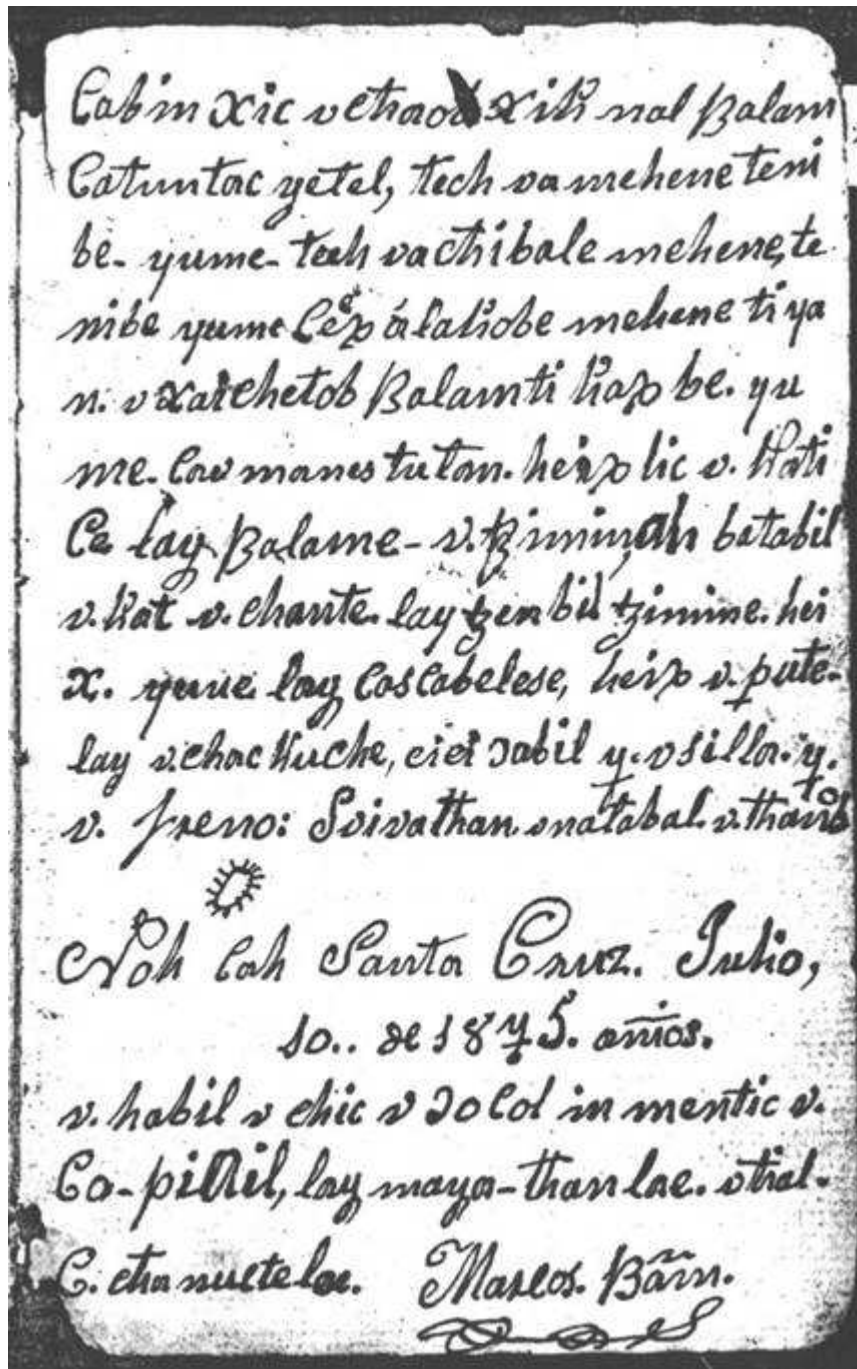 Cabin xic v chaob xikinal Balam
Catuntac yetel, tech va mehene teni
be- yume- tech va chibale mehene, te
nibe yume Cex a lakobe mehene ti ya
n. v xaichetob Balam ti kax be. yu
me. Cau manes tu tan. heix lic v. kati
Ce lay Balame- v. tzimin, ah batabil
v. kat v. chante. lay tzen bil tzimine. hei
x. yume lay Cascabelese, heix v. pute-
lay v. chac kuche, cici Dabil y. v silla. y.
v. freno: Suiva than. v natabal. v. thanob
Noh Cah Santa Cruz. Julio,
10.. de 1875. años.
v. habil v chic v Docol in mentic v.
Co-piail, lay maya-than lae. v tial.
C. cha nucte lae. Marcos. Bãm.